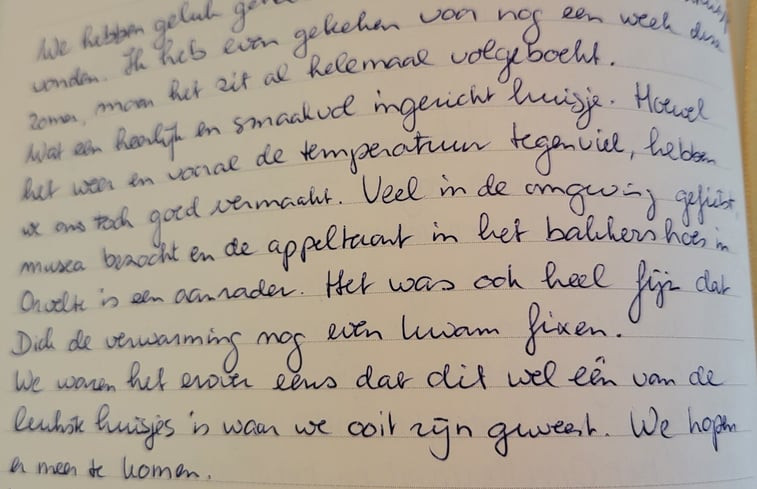 We hebben geluk
vonden. Ik heb even gekeken voor nog een week deze
zomer, maar het zit al helemaal volgeboekt.
Wat een heerlijk en smaakvol ingericht huisje. Hoewel
het weer en vooral de temperatuur tegenviel, hebben
we ons toch goed vermaakt. Veel in de omgeving gefietst,
musea bezocht en de appeltaart in het bakkershoes in
Orvelte is een aanrader. Het was ook heel fijn dat
Dick de verwarming nog even kwam fixen.
We waren het erover eens dat dit wel één van de
leukste huisjes is waar we ooit zijn geweest. We hopen
er meer te komen.